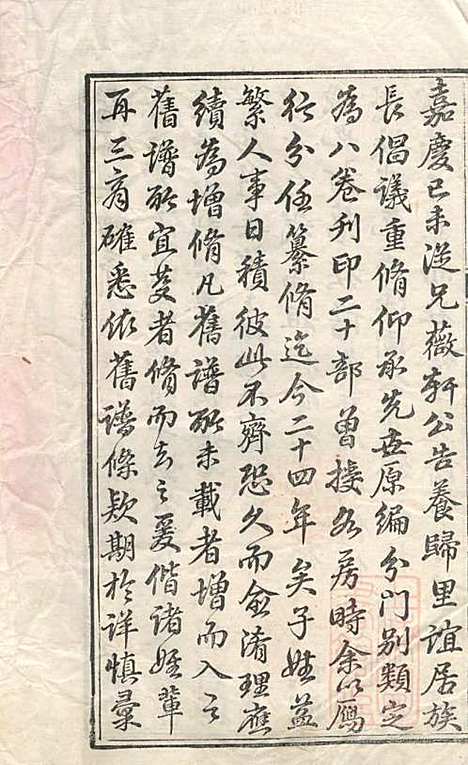 嘉慶己未從兄薇軒公告養歸里誼居族
長倡議重脩仰承先世原編分門別類定
為八卷刋印二十部曾授各房時余以雁
行分任纂脩迄今二十四年矣子姓益
繁人事日積彼此不齊恐久而僉淆理應
續為增脩凡舊譜所未載者增而入之
舊譜所宜芟者脩而去之爰偕諸姪輩
再三商確悉依舊譜條欵期於詳慎彙